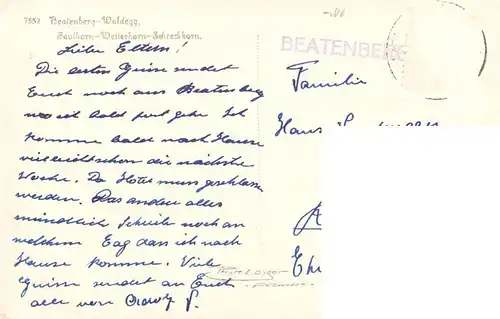 7553 Beatenberg-Waldegg,
Faulhorn-Wetterhorn-Schreckhorn.
Liebe Eltern!
Die ersten Grüsse sendet
Euch noch aus Beatenberg
wo ich bald fort gehe Ich
komme bald nach Hause
vielleicht schon die nächste
Woche. Da Hotel muss geschlossen
werden. Das andere alles
mündlich Schreibe noch an
welchem Tag dass ich nach
Hause komme. Viele
Grüsse sendet an Euch
alle von
BEATENBERG
Familie
Hans